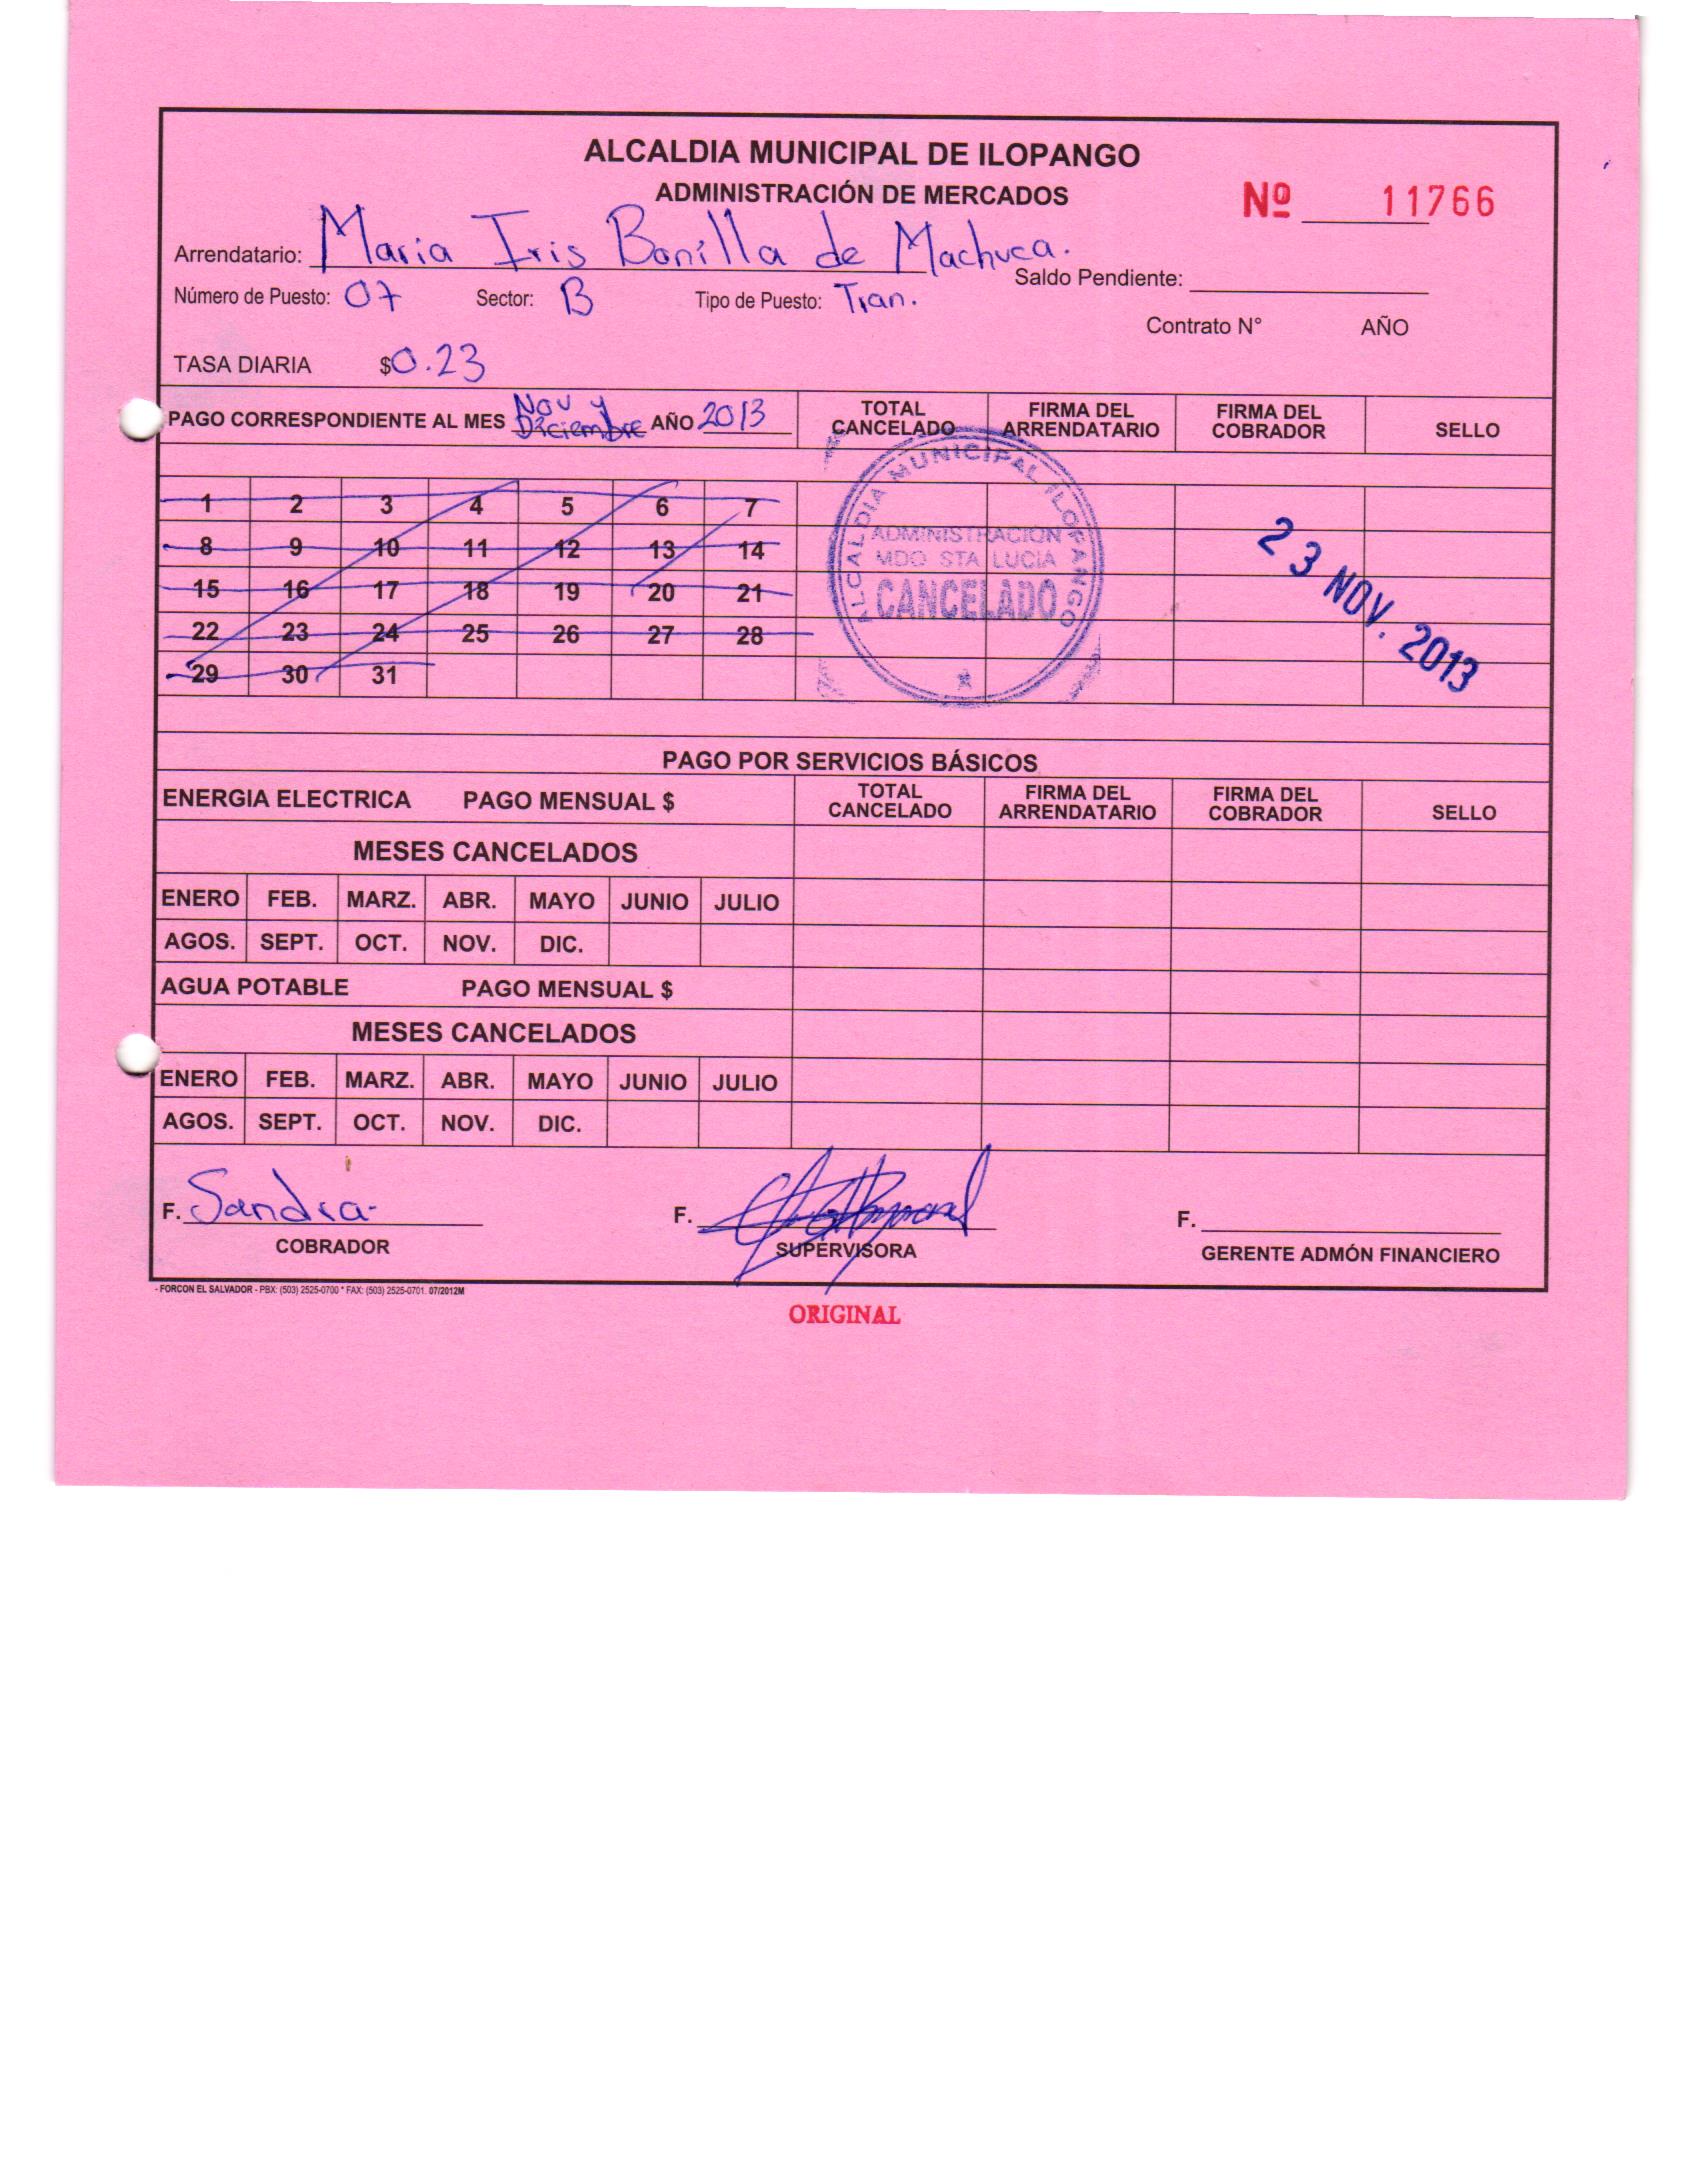 ALCALDIA MUNICIPAL DE ILOPANGO
ADMINISTRACIÓN DE MERCADOS
Nº 11766
Arrendatario: Maria Iris Bonilla de Machuca.
Saldo Pendiente:
Número de Puesto: 07 Sector: B Tipo de Puesto: Tran.
Contrato N° AÑO
TASA DIARIA $0.23
PAGO CORRESPONDIENTE AL MES Nov y Diciembre AÑO 2013
TOTAL CANCELADO
FIRMA DEL ARRENDATARIO
FIRMA DEL COBRADOR
SELLO
1 2 3 4 5 6 7
8 9 10 11 12 13 14
15 16 17 18 19 20 21
22 23 24 25 26 27 28
29 30 31
ALCALDIA MUNICIPAL ILOPANGO
ADMINISTRACION
MDO STA LUCIA
CANCELADO
23 NOV. 2013
PAGO POR SERVICIOS BÁSICOS
ENERGIA ELECTRICA PAGO MENSUAL $
TOTAL CANCELADO
FIRMA DEL ARRENDATARIO
FIRMA DEL COBRADOR
SELLO
MESES CANCELADOS
ENERO FEB. MARZ. ABR. MAYO JUNIO JULIO
AGOS. SEPT. OCT. NOV. DIC.
AGUA POTABLE PAGO MENSUAL $
MESES CANCELADOS
ENERO FEB. MARZ. ABR. MAYO JUNIO JULIO
AGOS. SEPT. OCT. NOV. DIC.
F. Sandra F. F.
COBRADOR SUPERVISORA GERENTE ADMÓN FINANCIERO
- FORCON EL SALVADOR - PBX: (503) 2525-0700 * FAX: (503) 2525-0701. 07/2012M
ORIGINAL